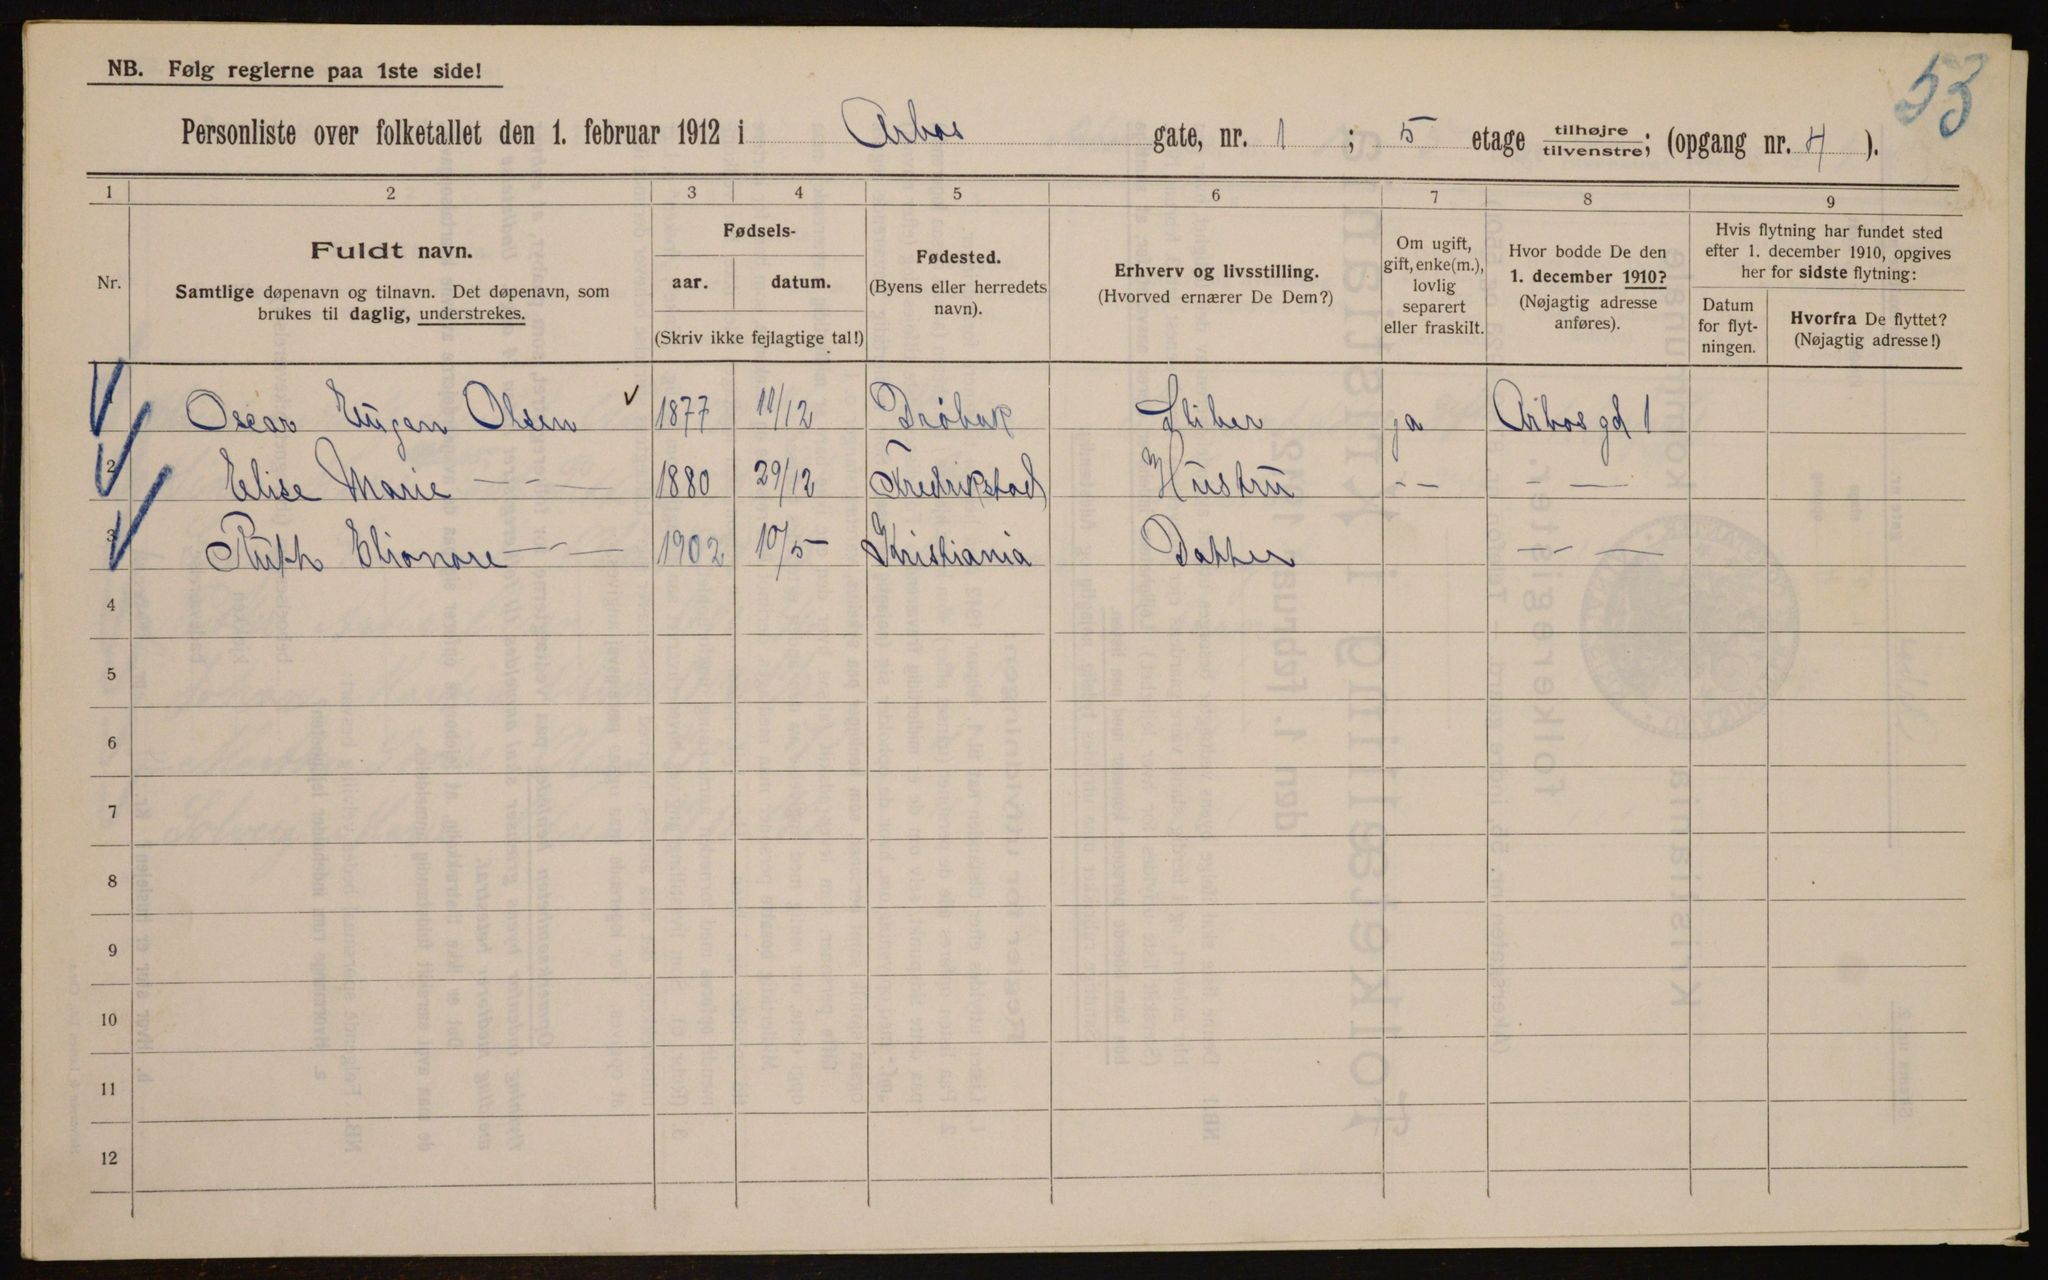 53
NB. Følg reglerne paa 1ste side!
Personliste over folketallet den 1. februar 1912 i Arbos gate, nr. 1 ; 5 etage tilhøjre tilvenstre; (opgang nr. 4 ).
1 2 3 4 5 6 7 8 9
Nr.
Fuldt navn.
Samtlige døpenavn og tilnavn. Det døpenavn, som
brukes til daglig, understrekes.
Fødsels-
aar. datum.
(Skriv ikke fejlagtige tal!)
Fødested.
(Byens eller herredets
navn).
Erhverv og livsstilling.
(Hvorved ernærer De Dem?)
Om ugift,
gift, enke(m.),
lovlig
separert
eller fraskilt.
Hvor bodde De den
1. december 1910?
(Nøjagtig adresse
anføres).
Hvis flytning har fundet sted
efter 1. december 1910, opgives
her for sidste flytning:
Datum
for flyt-
ningen.
Hvorfra De flyttet?
(Nøjagtig adresse!)
Oscar Eugen Olsen 1877 11/12 Drøbak Sliber ja Arbosgd 1
2 Elise Marie - - - 1880 29/12 Fredrikstad Hustru - - - -
3 Ruth Elionore - - - 1902 10/5 Kristiania Datter - - -
4
5
6
7
8
9
10
11
12